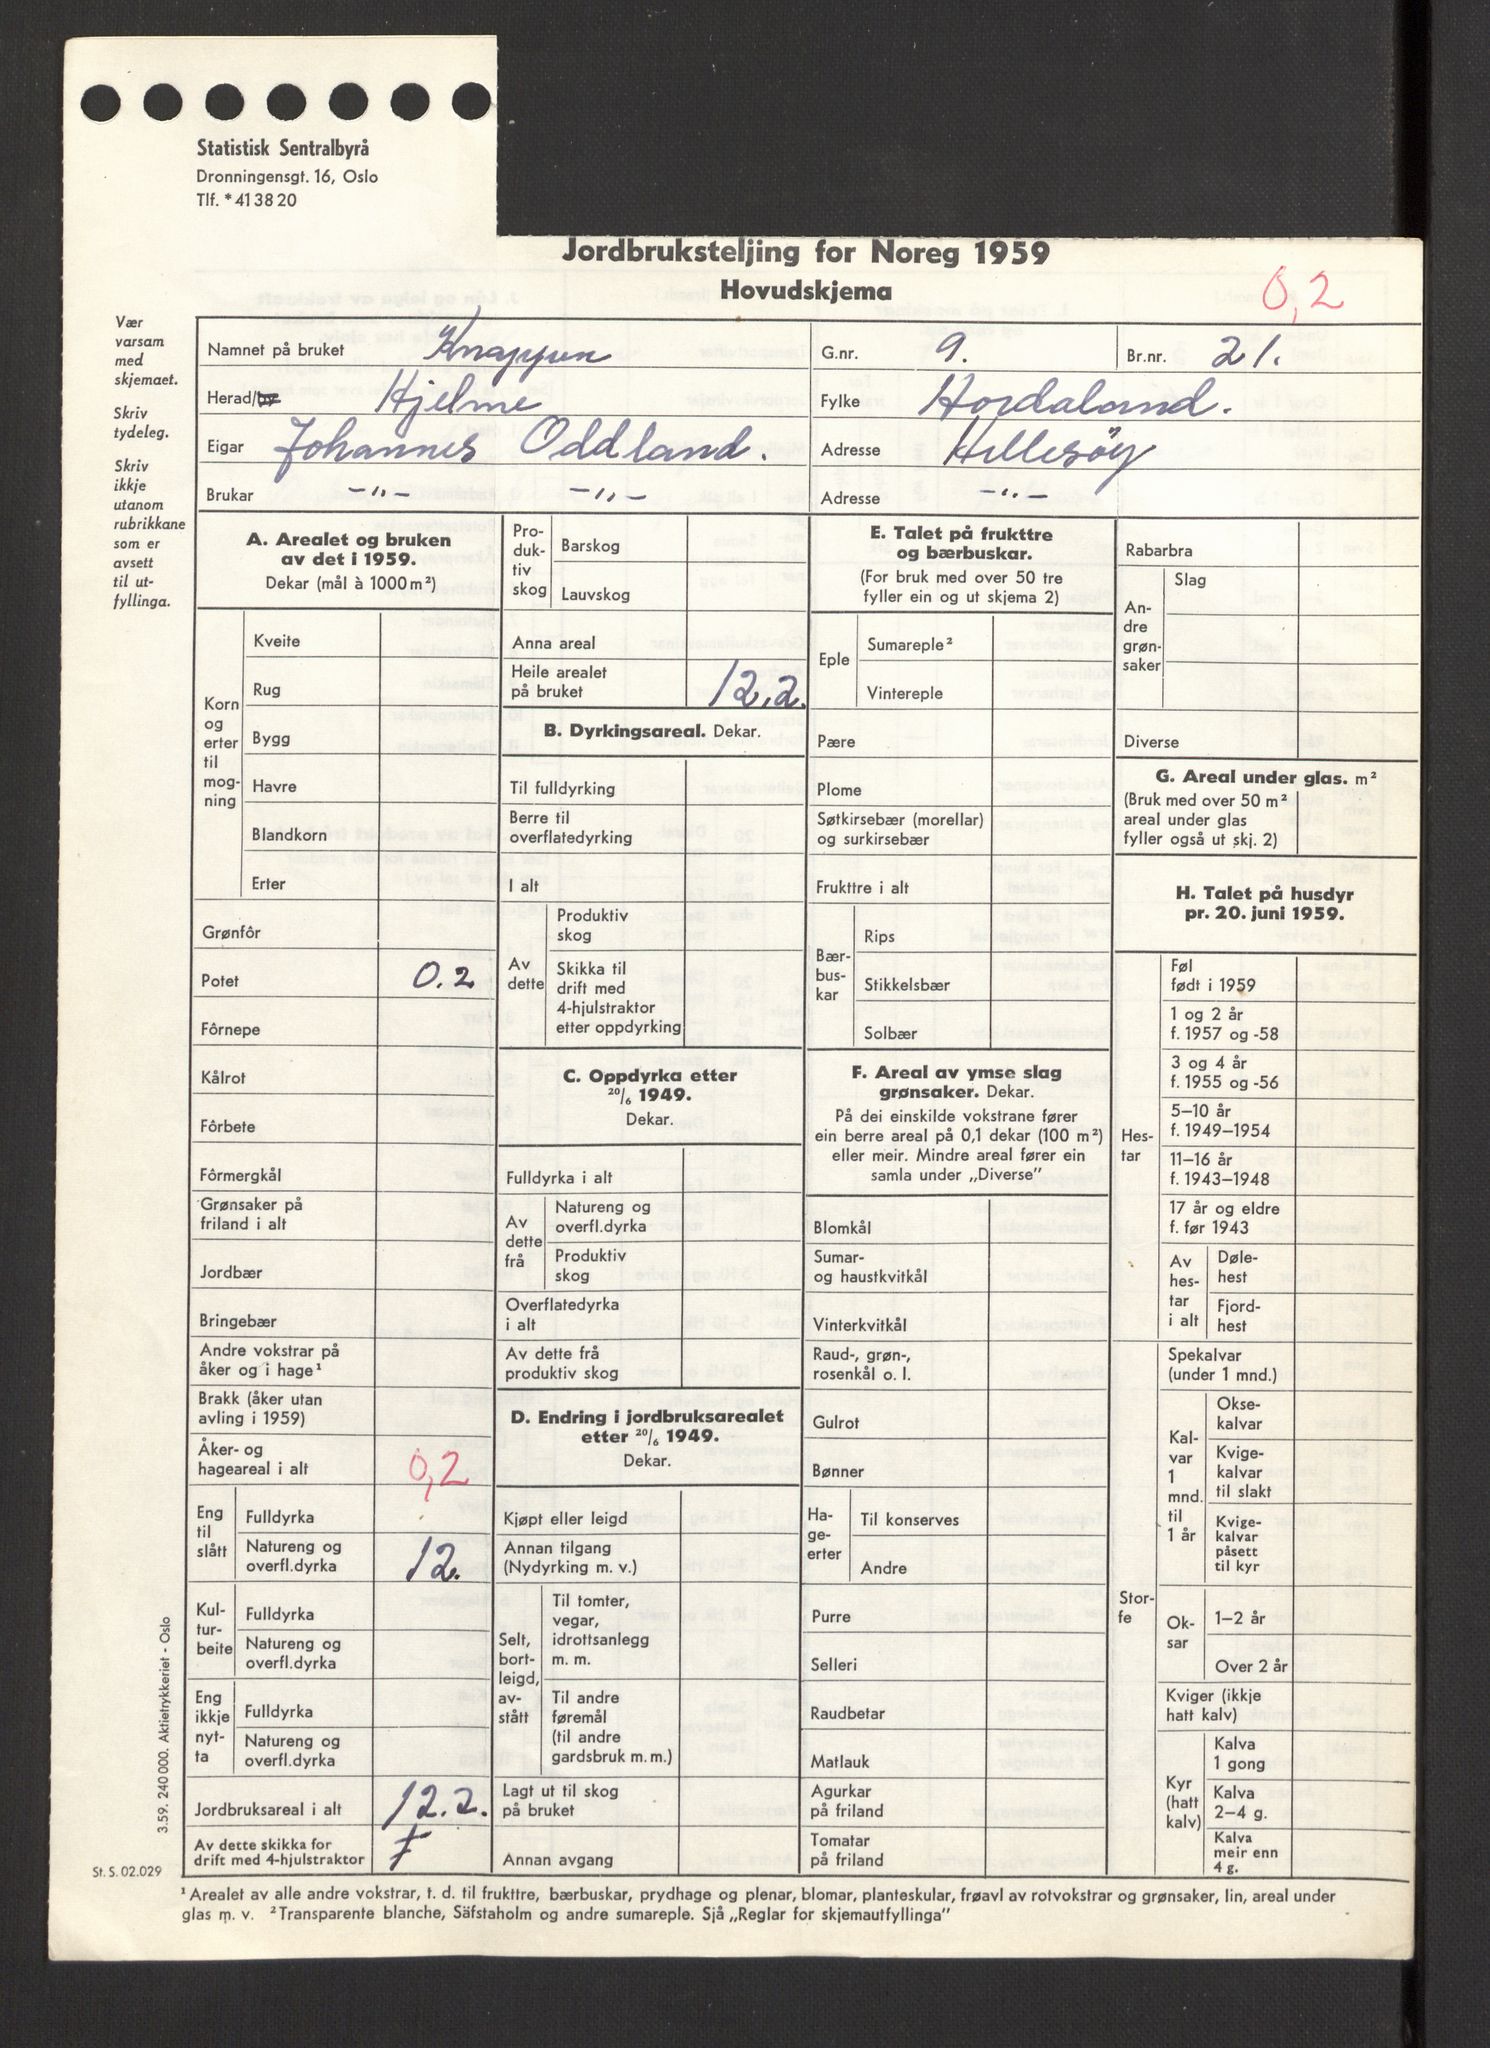 Statistisk Sentralbyrå
Dronningensgt. 16, Oslo
Tlf. *41 38 20
Jordbruksteljing for Noreg 1959
Hovudskjema
0,2
Vær
varsam
med
skjemaet.
Skriv
tydeleg.
Skriv
ikkje
utanom
rubrikkane
som er
avsett
til ut-
fyllinga.
Namnet på bruket Knappen G.nr. 9. Br.nr. 21.
Herad/by Hjelme Fylke Hordaland.
Eigar Johannes Oddland. Adresse Hellesöy
Brukar -"- -"- Adresse -"-
A. Arealet og bruken
av det i 1959.
Dekar (mål à 1000 m²)
Korn
og
erter
til
mog-
ning
Kveite
Rug
Bygg
Havre
Blandkorn
Erter
Grønfôr
Potet 0.2
Fôrnepe
Kålrot
Fôrbete
Fôrmergkål
Grønsaker på
friland i alt
Jordbær
Bringebær
Andre vokstrar på
åker og i hage¹
Brakk (åker utan
avling i 1959)
Åker- og
hageareal i alt 0,2
Eng
til
slått
Fulldyrka
Natureng og
overfl.dyrka 12.
Kul-
tur-
beite
Fulldyrka
Natureng og
overfl.dyrka
Eng
ikkje
nyt-
ta
Fulldyrka
Natureng og
overfl.dyrka
Jordbruksareal i alt 12.2.
Av dette skikka for
drift med 4-hjulstraktor
Pro-
duk-
tiv
skog
Barskog
Lauvskog
Anna areal
Heile arealet
på bruket 12.2.
B. Dyrkingsareal. Dekar.
Til fulldyrking
Berre til
overflatedyrking
I alt
Av
dette
Produktiv
skog
Skikka til
drift med
4-hjulstraktor
etter oppdyrking
C. Oppdyrka etter
20/6 1949.
Dekar.
Fulldyrka i alt
Av
dette
frå
Natureng og
overfl.dyrka
Produktiv
skog
Overflatedyrka
i alt
Av dette frå
produktiv skog
D. Endring i jordbruksarealet
etter 20/6 1949.
Dekar.
Kjøpt eller leigd
Annan tilgang
(Nydyrking m. v.)
Selt,
bort-
leigd,
av-
stått
Til tomter,
vegar,
idrottsanlegg
m. m.
Til andre
føremål
(til andre
gardsbruk m. m.)
Lagt ut til skog
på bruket
Annan avgang
E. Talet på frukttre
og bærbuskar.
(For bruk med over 50 tre
fyller ein og ut skjema 2)
Eple
Sumareple²
Vintereple
Pære
Plome
Søtkirsebær (morellar)
og surkirsebær
Frukttre i alt
Bær-
bus-
kar
Rips
Stikkelsbær
Solbær
F. Areal av ymse slag
grønsaker. Dekar.
På dei einskilde vokstrane fører
ein berre areal på 0,1 dekar (100 m²)
eller meir. Mindre areal fører ein
samla under „Diverse”
Blomkål
Sumar-
og haustkvitkål
Vinterkvitkål
Raud-, grøn-,
rosenkål o. l.
Gulrot
Bønner
Ha-
ge-
erter
Til konserves
Andre
Purre
Selleri
Raudbetar
Matlauk
Agurkar
på friland
Tomatar
på friland
Rabarbra
An-
dre
grøn-
saker
Slag
Diverse
G. Areal under glas. m²
(Bruk med over 50 m²
areal under glas
fyller også ut skj. 2)
H. Talet på husdyr
pr. 20. juni 1959.
Hes-
tar
Føl
født i 1959
1 og 2 år
f. 1957 og -58
3 og 4 år
f. 1955 og -56
5–10 år
f. 1949–1954
11–16 år
f. 1943–1948
17 år og eldre
f. før 1943
Av
hes-
tar
i alt
Døle-
hest
Fjord-
hest
Stor-
fe
Spekalvar
(under 1 mnd.)
Kal-
var
1
mnd.
til
1 år
Okse-
kalvar
Kvige-
kalvar
til slakt
Kvige-
kalvar
påsett
til kyr
Ok-
sar
1–2 år
Over 2 år
Kviger (ikkje
hatt kalv)
Kyr
(hatt
kalv)
Kalva
1 gong
Kalva
2–4 g.
Kalva
meir enn
4 g.
3.59. 240 000. Aktietrykkeriet - Oslo
St. S. 02.029
¹ Arealet av alle andre vokstrar, t. d. til frukttre, bærbuskar, prydhage og plenar, blomar, planteskular, frøavl av rotvokstrar og grønsaker, lin, areal under
glas m. v. ² Transparente blanche, Säfstaholm og andre sumareple. Sjå „Reglar for skjemautfyllinga”